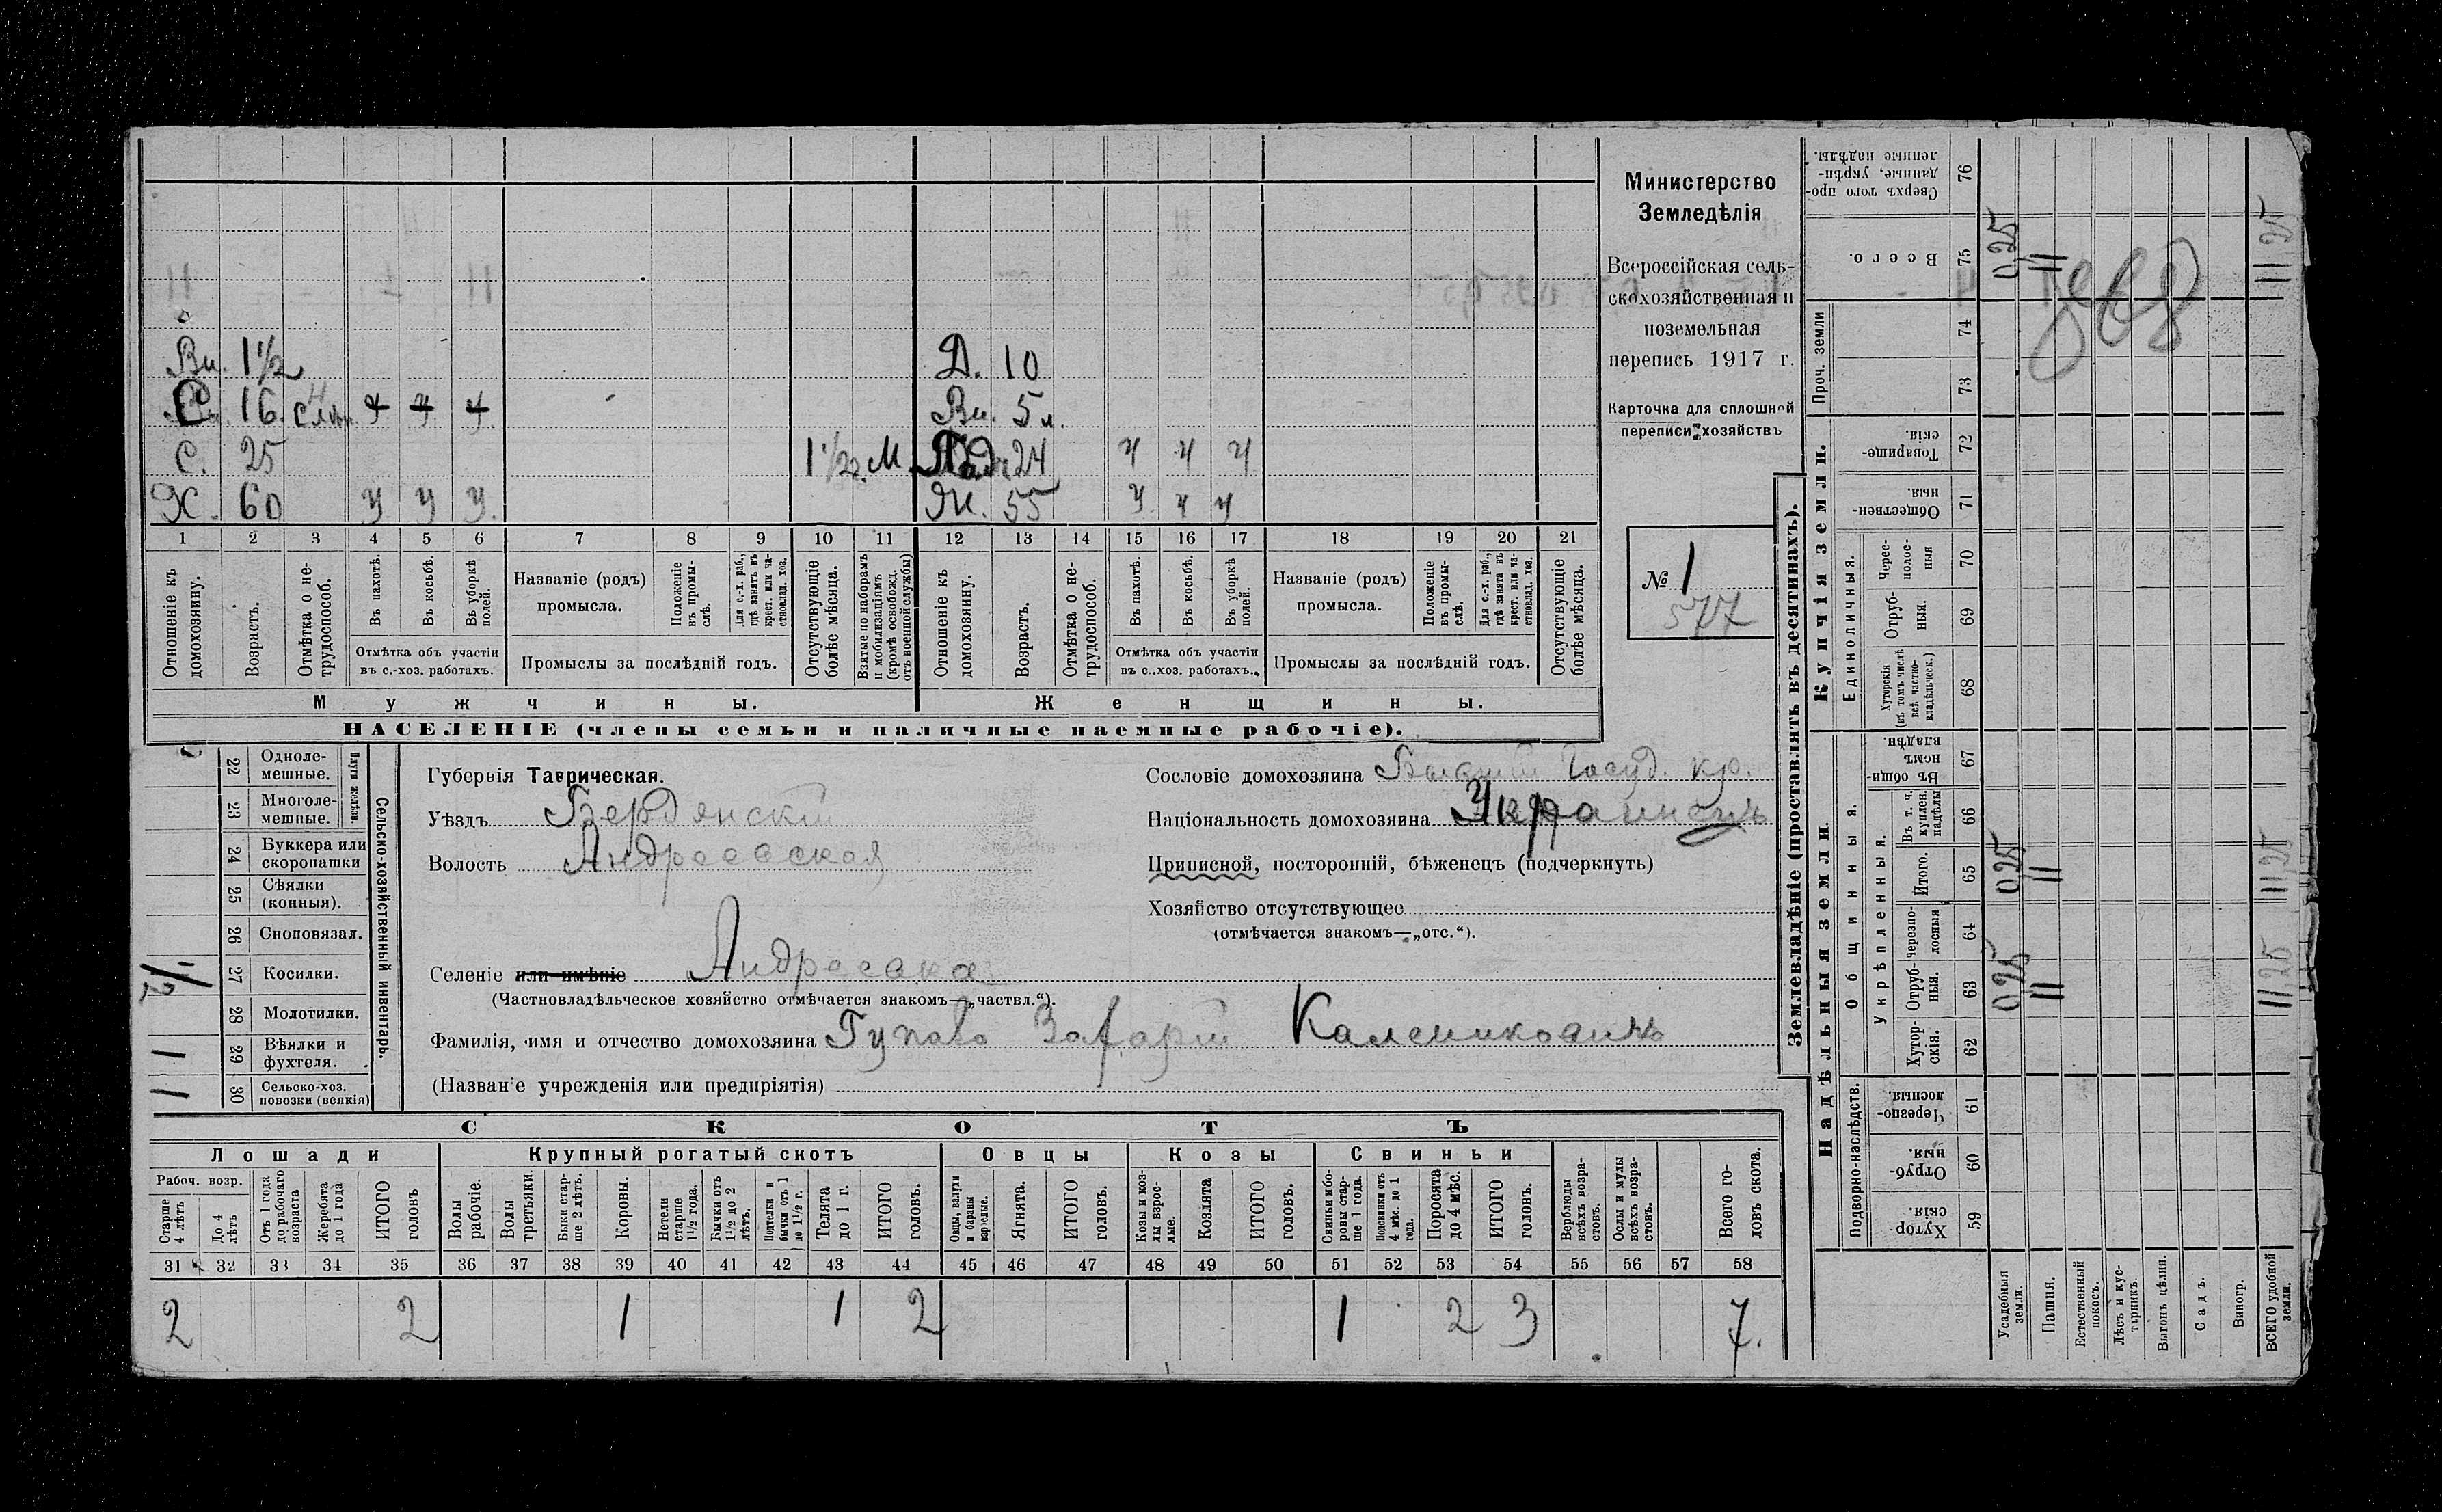 Ви. 1½ Д. 10
С. 16 ч ч ч Ви. 5 л.
С. 25 1½ М 24 ч ч ч
Х. 60 у у у Ж. 55 ч ч ч
1 2 3 4 5 6 7 8 9 10 11 12 13 14 15 16 17 18 19 20 21
Отношеніе къ домохозяину.
Возрастъ.
Отмѣтка о не-трудоспособ.
Въ пахотѣ.
Въ косьбѣ.
Въ уборкѣ полей.
Отмѣтка объ участіи
въ с.-хоз. работахъ.
Названіе (родъ)
промысла.
Положеніе въ промы-слѣ.
Для с.-х. раб., гдѣ занятъ въ крест. или ча-стновлад. хоз.
Промыслы за послѣдній годъ.
Отсутствующіе болѣе мѣсяца.
Взятые по наборамъ и мобилизаціямъ (кромѣ освобожд. отъ военной службы)
Отношеніе къ домохозяину.
Возрастъ.
Отмѣтка о не-трудоспособ.
Въ пахотѣ.
Въ косьбѣ.
Въ уборкѣ полей.
Отмѣтка объ участіи
въ с..хоз. работахъ.
Названіе (родъ)
промысла.
Положеніе въ промы-слѣ.
Для с.-х. раб., гдѣ занята въ крест. или ча-стновлад. хоз.
Промыслы за послѣдній годъ.
Отсутствующіе болѣе мѣсяца.
Мужчины. Женщины.
НАСЕЛЕНІЕ (члены семьи и наличные наемные рабочіе).
Министерство
Земледѣлія
Всероссійская сель-
скохозяйственная и
поземельная
перепись 1917 г.
Карточка для сплошной
переписи хозяйствъ
№ 1
577
Губернія Таврическая.
Уѣздъ Бердянскій
Волость Андреевская
Селеніе или имѣніе Андреевка
(Частновладѣльческое хозяйство отмѣчается знакомъ—„частвл.“).
Фамилія, имя и отчество домохозяина Гупало Захарій Калениковичъ
(Названіе учрежденія или предпріятія)
Сословіе домохозяина Бывшій Госуд. кр.
Національность домохозяина Украинецъ
Приписной, посторонній, бѣженецъ (подчеркнуть)
Хозяйство отсутствующее
(отмѣчается знакомъ—„отс.“).
22 Одноле-мешные.
23 Многоле-мешные.
Плуги желѣзн.
24 Буккера или скоропашки
25 Сѣялки (конныя).
26 Сноповязал.
27 Косилки.
28 Молотилки.
1 29 Вѣялки и фухтеля.
1 30 Сельско-хоз. повозки (всякія)
Сельско-хозяйственный инвентарь.
СКОТЪ
Лошади Крупный рогатый скотъ Овцы Козы Свиньи
Рабоч. возр.
Старше 4 лѣтъ
До 4 лѣтъ
Отъ 1 года до рабочаго возраста
Жеребята до 1 года
ИТОГО головъ
Волы рабочіе.
Волы третьяки.
Быки стар-ше 2 лѣтъ.
Коровы.
Нетели старше 1½ года.
Бычки отъ 1½ до 2 лѣтъ.
Подтелки и бычки отъ 1 до 1½ г.
Телята до 1 г.
ИТОГО головъ.
Овцы, валухи и бараны взрослые.
Ягнята.
ИТОГО головъ.
Козы и коз-лы взрос-лые.
Козлята
ИТОГО головъ.
Свиньи и бо-ровы стар-ше 1 года.
Подсвинки отъ 4 мѣс. до 1 года.
Поросята до 4 мѣс.
ИТОГО головъ.
Верблюды всѣхъ возра-стовъ.
Ослы и мулы всѣхъ возра-стовъ.
Всего го-ловъ скота.
31 32 33 34 35 36 37 38 39 40 41 42 43 44 45 46 47 48 49 50 51 52 53 54 55 56 57 58
2 2 1 1 2 1 2 3 7.
Землевладѣніе (проставлять въ десятинахъ).
Надѣльныя земли. Купчія земли. Проч. земли
Подворно-наслѣдств.
Общинныя.
Укрѣпленныя.
Единоличныя.
Хутор-скія. 59
Отруб-ныя. 60
Черезпо-лосныя. 61
Хутор-скія. 62
Отруб-ныя. 63 0,25 11 11,25
Черезпо-лосныя 64
Итого. 65 0,25 11 11,25
Въ т. ч. куплен. надѣлы 66
Въ общи-номъ владѣн. 67
Хуторскія (въ томъ числѣ всѣ частно-владѣльческ.) 68
Отруб-ныя. 69
Черес-полос-ныя 70
Обществен-ныя. 71
Товарище-скія. 72
73
74
Всего. 75 0,25 11 11,25
Сверхъ того про-данные, укрѣп-ленные надѣлы. 76
Усадебныя земли.
Пашня.
Естественный покосъ.
Лѣсъ и кус-тарникъ.
Выгонъ цѣлин.
Садъ.
Виногр.
ВСЕГО удобной земли.